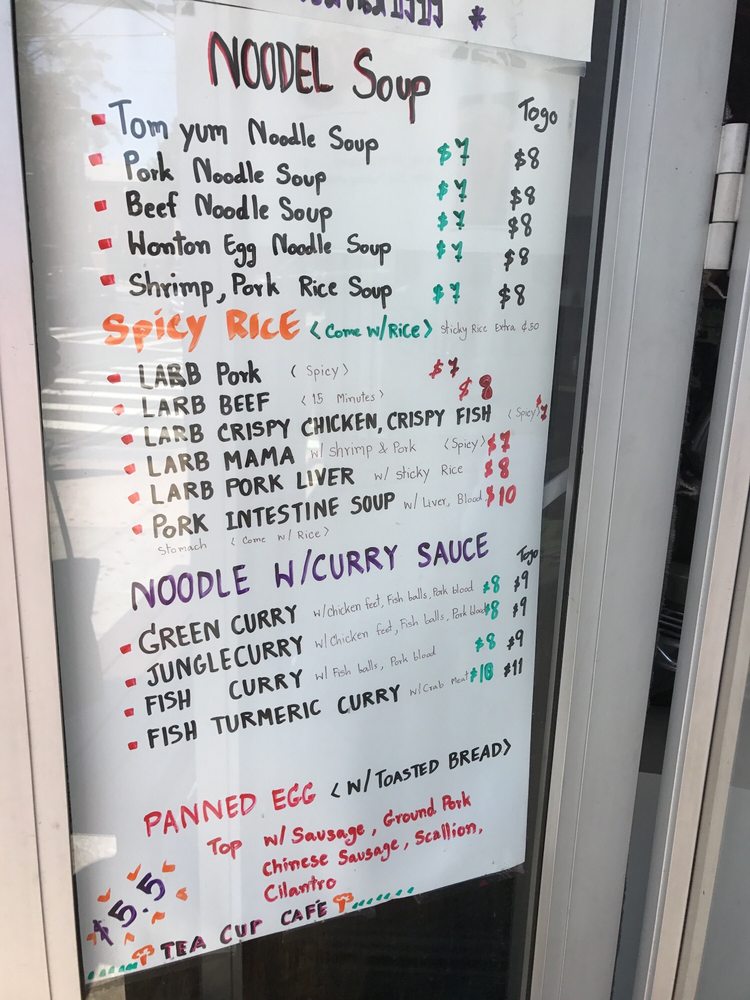 NOODEL Soup
Togo
Tom yum Noodle Soup $7 $8
Pork Noodle Soup $7 $8
Beef Noodle Soup $7 $8
Wonton Egg Noodle Soup $7 $8
Shrimp, Pork Rice Soup $7 $8
Spicy RICE <Come w/Rice> Sticky Rice Extra $.50
LARB Pork <Spicy> $7
LARB BEEF <15 Minutes> $8
LARB CRISPY CHICKEN, CRISPY FISH <Spicy> $7
LARB MAMA w/ shrimp & Pork <Spicy> $7
LARB PORK LIVER w/ sticky Rice $8
PORK INTESTINE SOUP w/ Liver, Blood, $10
Stomach <Come w/ Rice>
NOODLE W/CURRY SAUCE Togo
GREEN CURRY w/chicken feet, Fish balls, Pork blood $8 $9
JUNGLECURRY w/Chicken feet, Fish balls, Pork blood $8 $9
FISH CURRY w/ Fish balls, Pork blood $8 $9
FISH TURMERIC CURRY w/Crab Meat $10 $11
PANNED EGG <W/TOASTED BREAD>
Top w/ Sausage, Ground Pork
Chinese Sausage, Scallion,
Cilantro
$5.5
TEA CUP CAFÉ